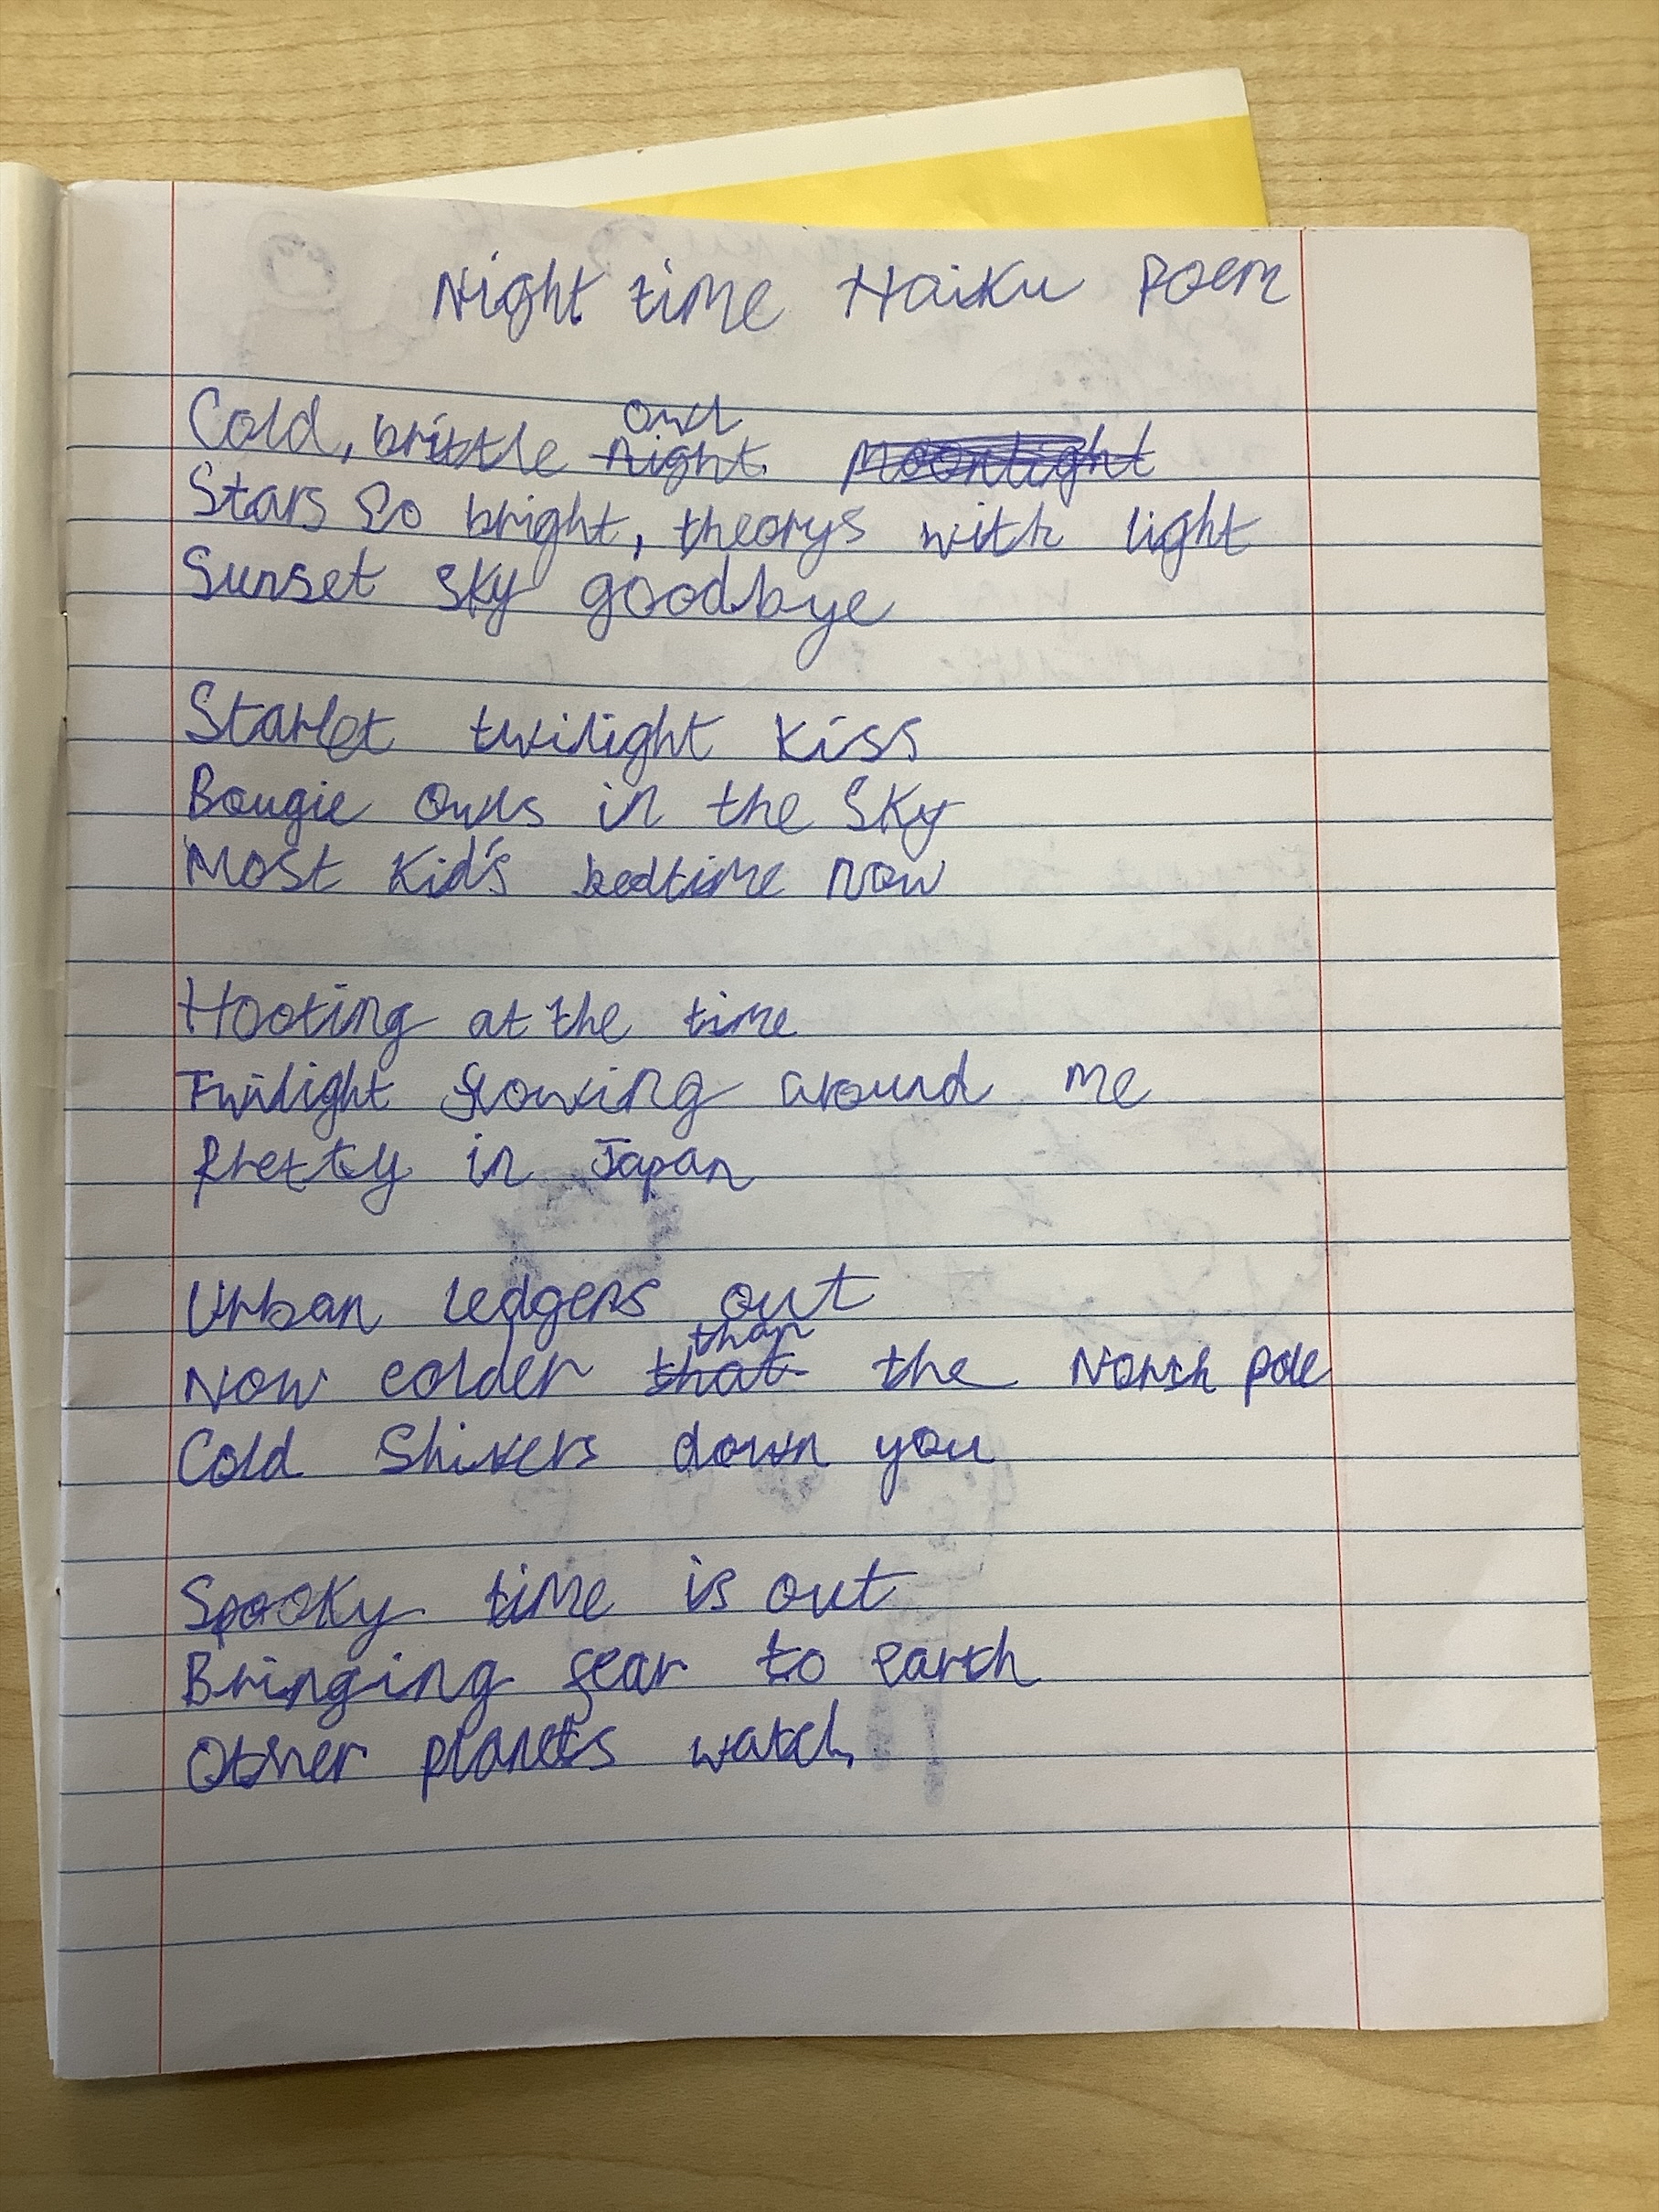 Night time Haiku Poem
Cold, brittle owl
night. Moonlight
Stars So bright, theorys with light
Sunset sky goodbye
Starlet twilight kiss
Bougie owls in the Sky
Most Kid's bedtime now
Hooting at the time
Twilight flowing around me
Pretty in Japan
Urban ledgers out
Now colder that than the North pole
Cold Shivers down you
Spooky time is out
Bringing fear to earth
Other planets watch